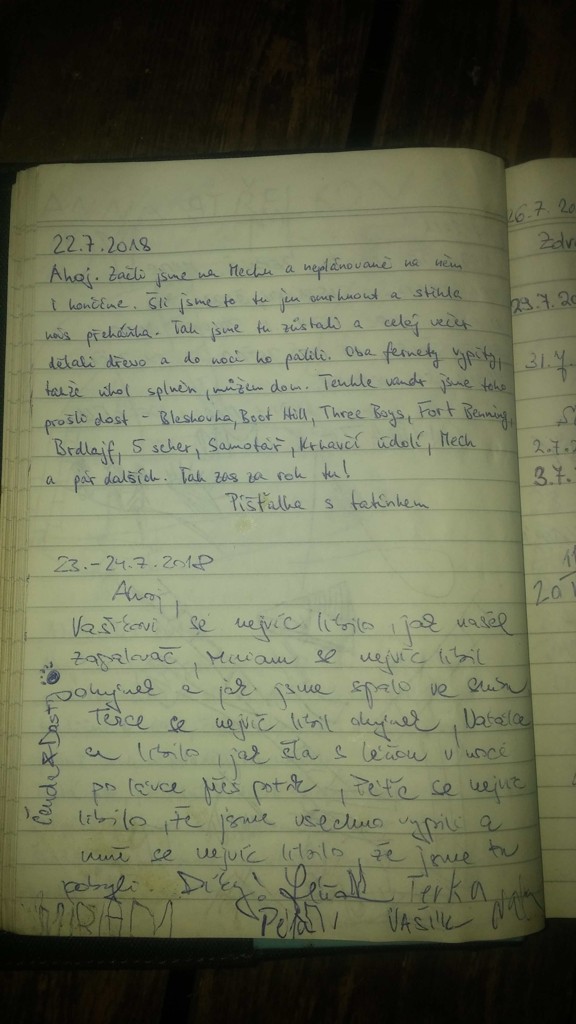 22.7.2018
Ahoj. Začli jsme na Mechu a neplánovaně na něm
i končíme. Šli jsme to tu jen omrknout a stihla
nás přeháňka. Tak jsme tu zůstali a celej večer
dělali dřevo a do noci ho pálili. Oba fernety vypity,
takže úkol splněn, můžem dom. Tenhle vandr jsme toho
prošli dost - Bleskovka, Boot Hill, Three Boys, Fort Benning,
Brdlajf, 5 scher, Samotář, Krkavčí údolí, Mech
a pár dalších. Tak zas za rok tu!
Píšťalka s taťínkem
23.-24.7.2018
Ahoj,
Vašíkovi se nejvíc líbilo, jak našel
zapalovač, Miriam se nejvíc líbil
ohýnek a jak jsme spalo ve
Terce se nejvíc líbil ohýnek,
líbilo, jak šla s Léňou v noci
po lávce přes potok, Pétě se nejvíc
líbilo, že jsme všechno vypili a
mně se nejvíc líbilo, že jsme tu
pobyli. Díky! Terka
MIRIAM Péťa VAŠÍK
26.7.20
Zdra
29.7.20
31.7.
2.7.
3.7.